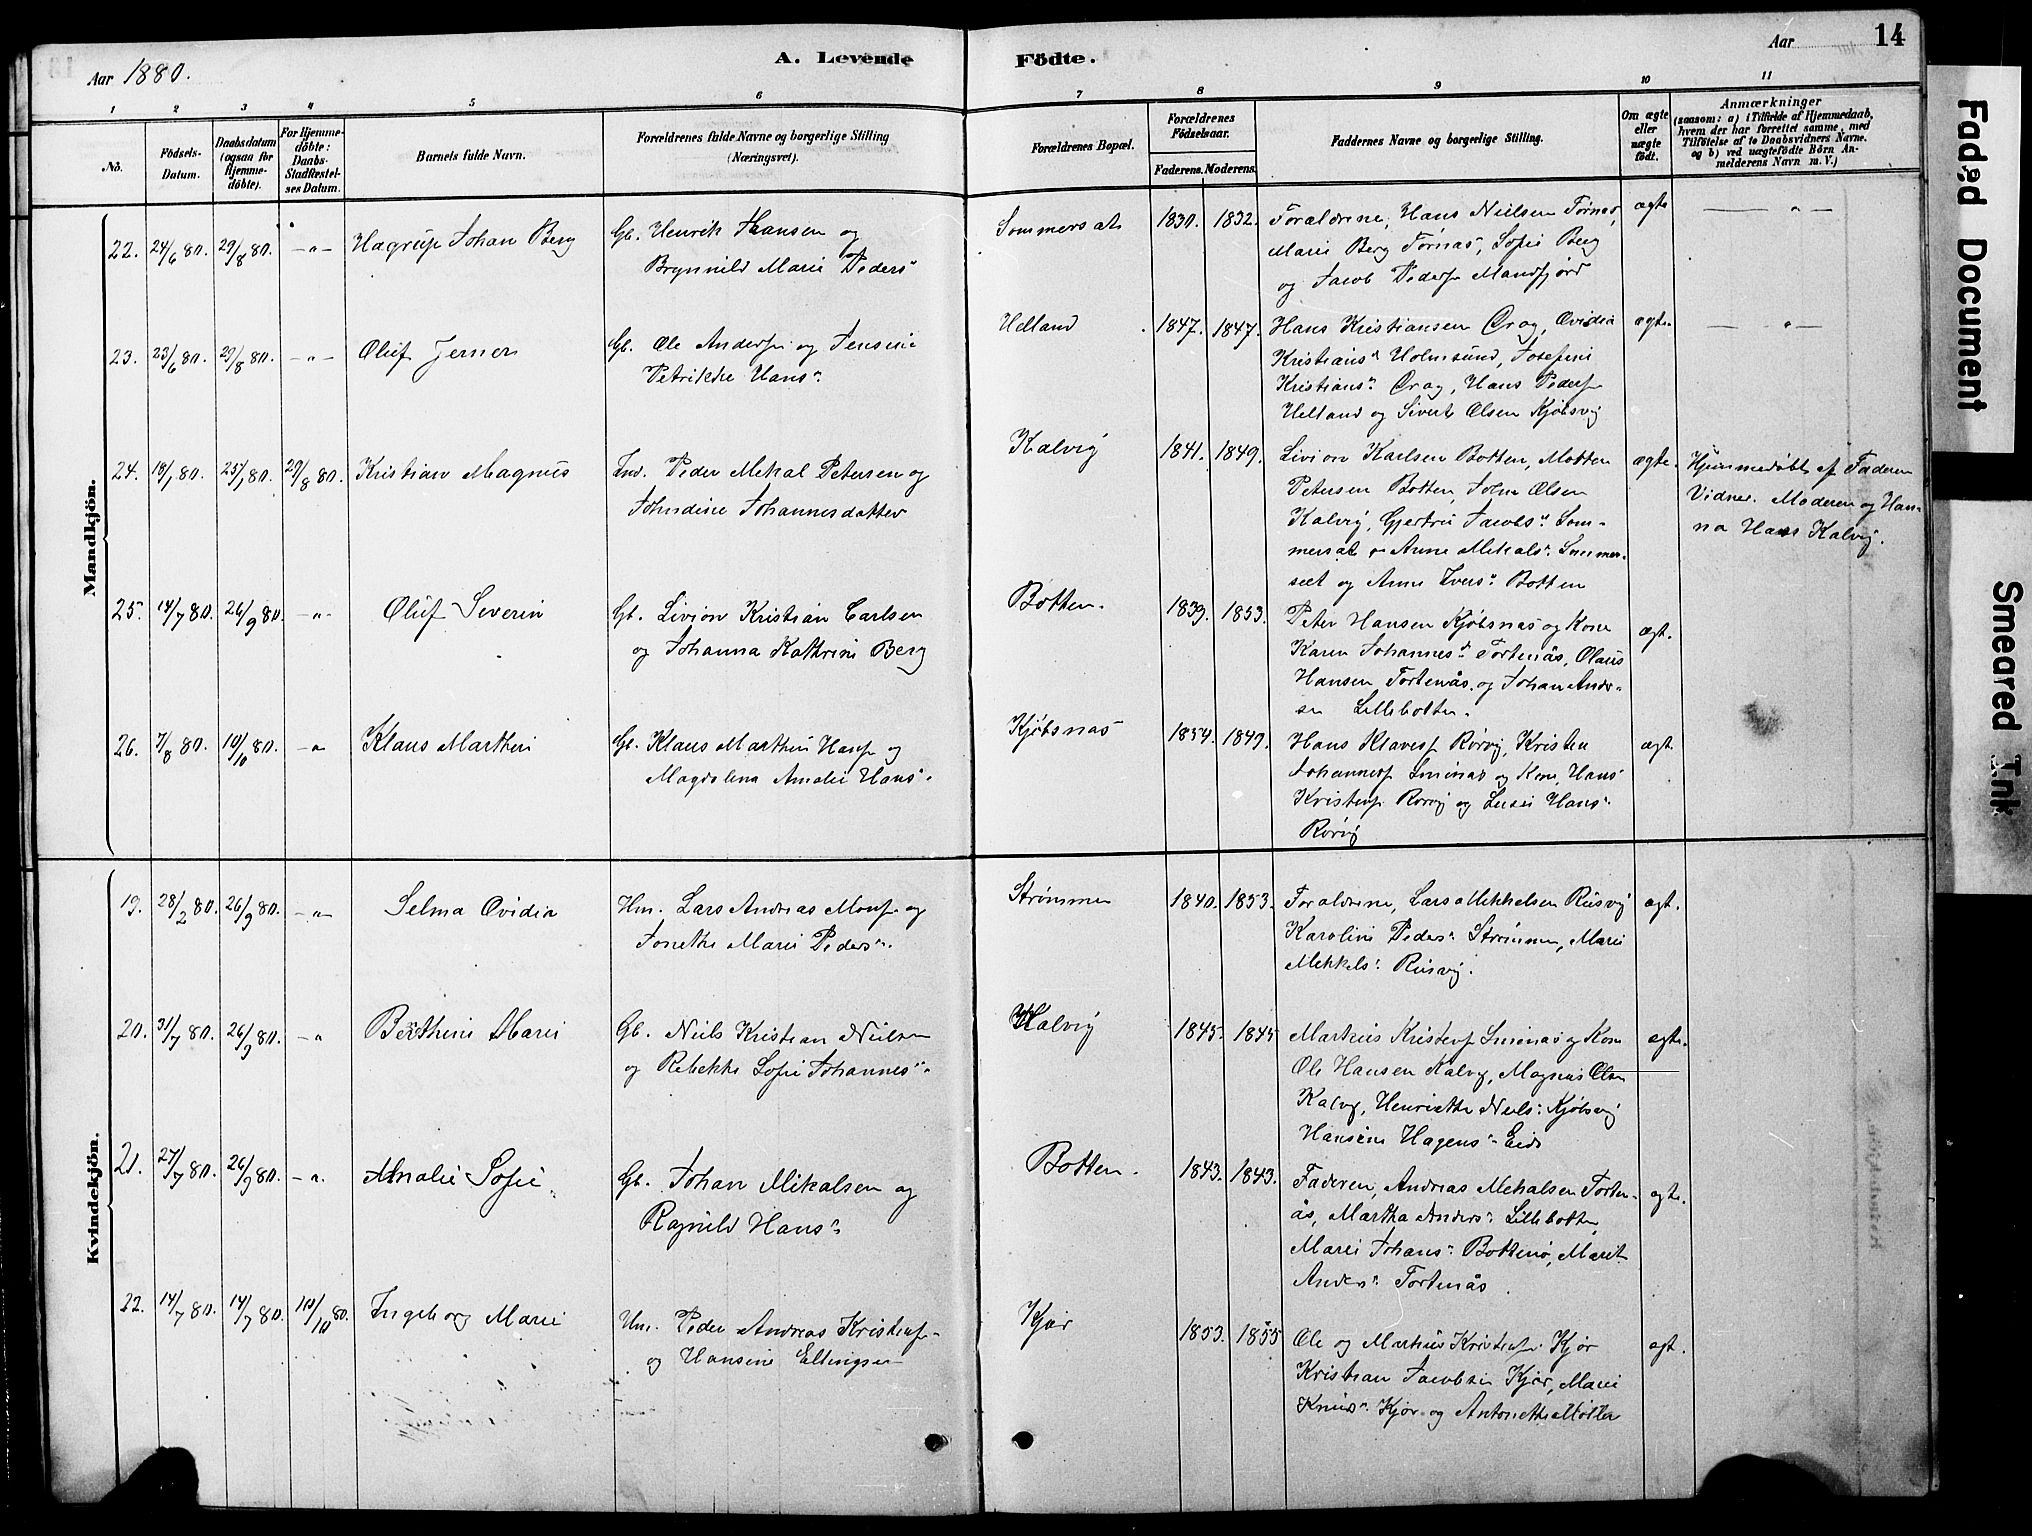 Aar 1880.
A. Levende
Födte.
Aar
14
1 2 3 4 5 6 7 8 9 10 11
No.
Födsels-
Datum.
Daabsdatum
(ogsaa for
Hjemme-
döbte).
For Hjemme-
döbte:
Daabs-
Stadfæstel-
ses Datum.
Barnets fulde Navn.
Forældrenes fulde Navne og borgerlige Stilling
(Næringsvei).
Forældrenes Bopæl.
Forældrenes
Födselsaar.
Faderens. Moderens.
Faddernes Navne og borgerlige Stilling.
Om ægte
eller
uægte
födt.
Anmærkninger
(saasom: a) i Tilfælde af Hjemmedaab,
hvem der har forrettet samme, med
Tilföielse af to Daabsvidners Navne.
og b) ved uægtefödte Börn An-
melderens Navn m. V.)
Mandkjön.
22. 24/6 80. 29/8 80. -"- Hagrup Johan Berg
Gb. Henrik Hansen og
Brynnild Marie Peders"
Sommersæt 1830. 1832.
Forældrene, Hans Nielsen Fornæs,
Marie Berg Fornæs, Sofie Berg
og Jacob Peders. Mandfjord
ægte — " —
23. 23/6 80. 29/8 80. -"- Oluf Jerner
Gb. Ole Anders. og Jensine
Petrikke Hans".
Helland 1847. 1847.
Hans Kristiansen Crag, Ovidia
Kristians" Holmsund, Josefine
Kristians" Crag, Hans Peders.
Helland og Sivert Olsen Kjöbsvig
ægte. — " —
24. 18/1 80. 25/1 80. 29/8 80. Kristian Magnus
Ind. Peder Mekal Petersen og
Johndine Johannesdatter
Kalvig 1841. 1849.
Livion Karlsen Botten, Motten
Petersen Botten, John Olsen
Kalvig, Gjertru Jacobs" Som-
mersæt Anne Mekals" Sommer-
sæt og Anne Ivers" Botten
ægte.
Hjemmedöbt af Faderen
Vidner. Moderen og Han-
na Hans Kalvig.
25. 26/9 80. -"- Oluf Severin
Gb. Livion Kristian Carlsen
og Johanna Kathrine Berg
Botten. 1839. 1853.
Peter Hansen Kjöbsnæs og Kone
Karen Johannes" Fortenås, Olaus
Hansen Fortenås, og Johan Ander-
sen Lillebotten.
ægt.
26. 7/8 80. 10/10 80. -"- Klaus Marthin
Gb. Klaus Marthin Hans. og
Magdalena Amalie Hans".
Kjöbsnæs 1854. 1849.
Hans Klaves. Rörvig, Kristen
Johannes. Smines og Kone, Hans
Kristens. Rörvig og Hans".
Rörvig
ægt
Kvindekjön.
19. 28/2 80. 26/9 80. -"- Selma Ovidia
Hm. Lars Andreas Mons. og
Jonethe Marie Peders".
Strömmen 1840. 1853.
Forældrene, Lars Mekkelsen Rusvig
Karoline Peders" Strömmen, Marie
Mekkels" Rusvig.
ægt.
20. 31/7 80. 26/9 80. -" Berthine Marie
Gb. Niels Kristian Nielsen
og Rebekka Sofie Johannes".
Kalvig 1845. 1845
Markus Kristens. Smines og Kone
Ole Hansen Kalvig, Magnus Olsen
Kalvg, Henriette Niels" Kjöbsvig
Hansine Hagens" Eids
ægte.
21. 27/7 80. 26/9 80. -". Amalie Sofie
Gb. Johan Mikalsen og
Ragnild Hans".
Botten. 1843. 1843.
Faderen, Andreas Mekalsen Forten-
ås, Martha Anders" Lillebotten
Marie Johans" Botten, Marit
Anders" Fortenås.
ægte.
22. 14/7 80. 14/7 80. 10/10 80. Ingeborg Marie
Hm. Peder Andreas Kristens.
og Hansine Ellingsen
Kjær 1853. 1855
Ole og Markus Kristens. Kjör
Kristian Jacobsen Kjær, Marie
Knuds" Kjör og Antonette Möller
ægt.
Faded Document
Smeared Ink